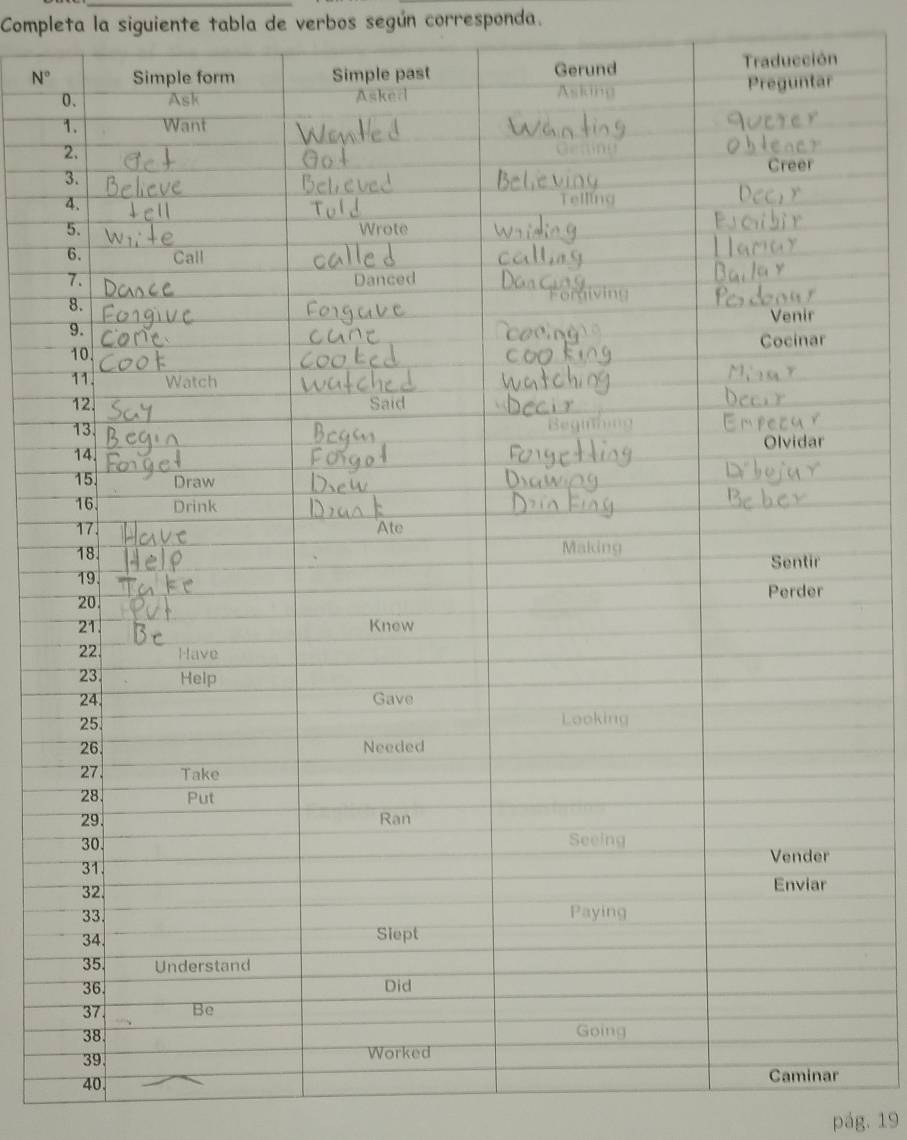 Completa la siguiente tabla de verbos según corresponda.
N° Simple form Simple past Gerund Traducción
0. Ask Asked Asking Preguntar
1. Want Wanted Wanting querer
2. Get Got Getting Obtener
3. Believe Believed Believing Creer
4. tell Told Telling Decir
5. Write Wrote Wriding Escribir
6. Call called calling Llamar
7. Dance Danced Dancing Bailar
8. Forgive Forgave Forgiving Perdonar
9. Come came Venir
10. Cook cooked cooking Cocinar
11. Watch watched watching Mirar
12. Say Said Decir Decir
13. Begin Began Beginning Empezar
14. Forget Forgot Forgetting Olvidar
15. Draw Drew Drawing Dibujar
16. Drink Drank Drinking Beber
17. Have Ate
18. Help Making
19. Take Sentir
20. Put Perder
21. Be Knew
22. Have
23. Help
24. Gave
25. Looking
26. Needed
27. Take
28. Put
29. Ran
30. Seeing
31. Vender
32. Enviar
33. Paying
34. Slept
35. Understand
36. Did
37. Be
38. Going
39. Worked
40. Caminar
pág. 19